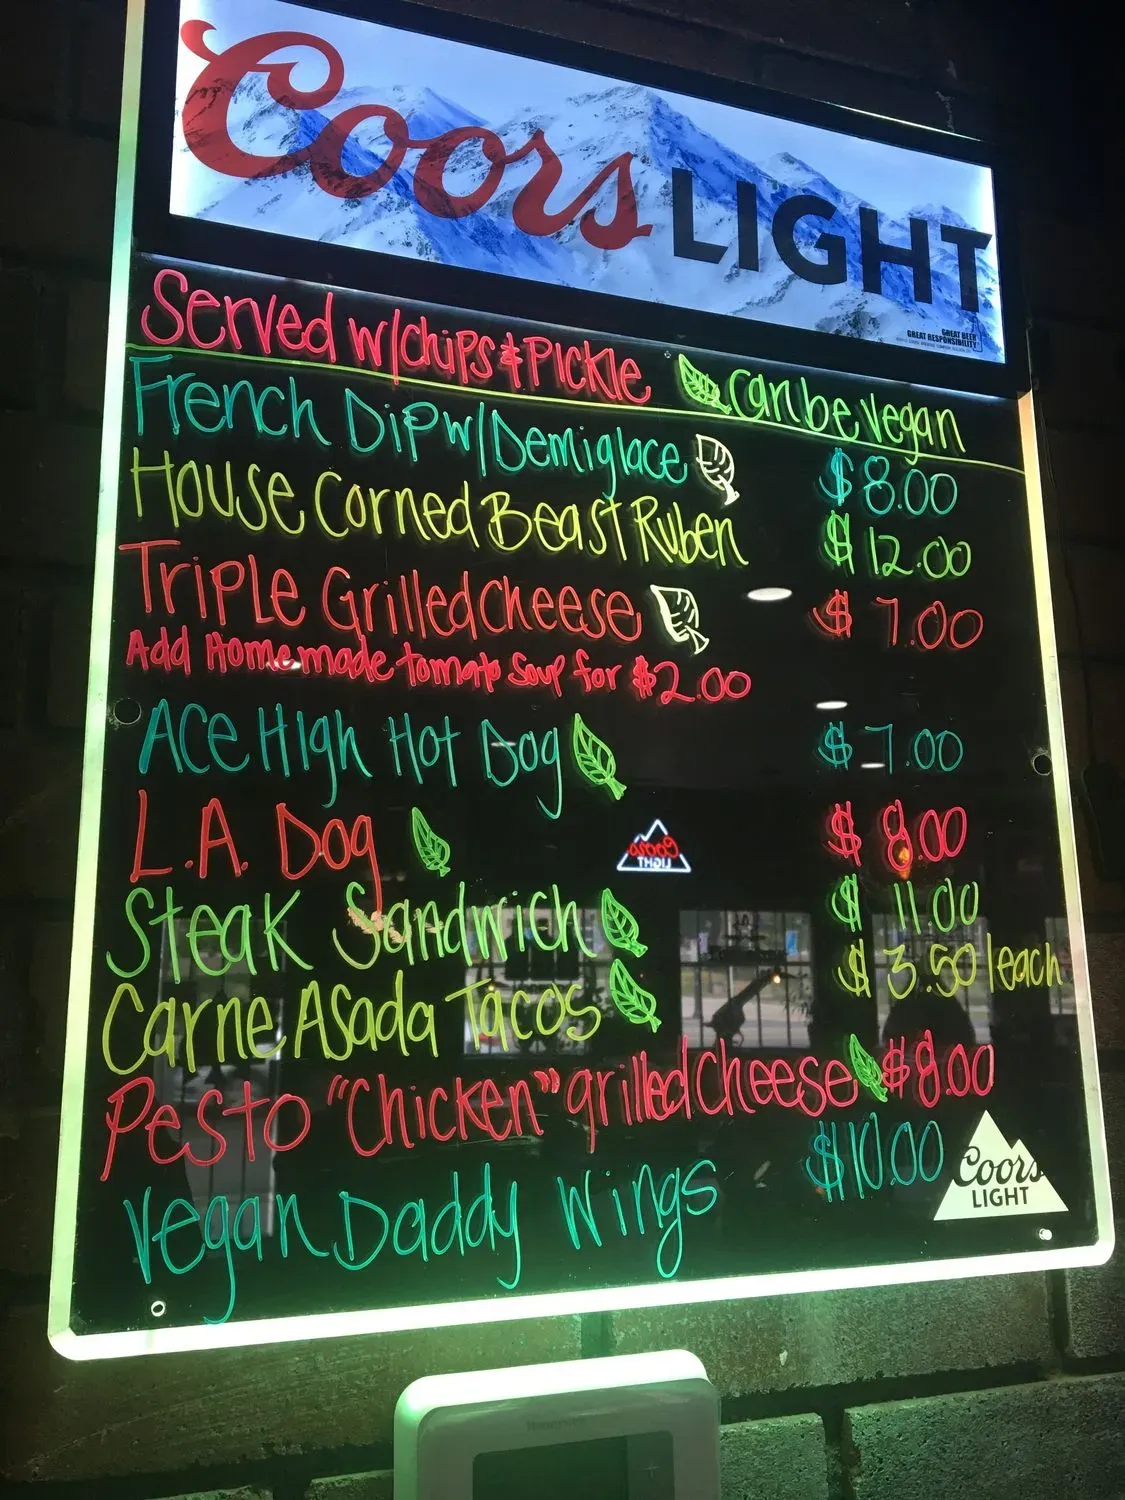 Coors LIGHT
GREAT BEER
GREAT RESPONSIBILITY
Served w/chips & Pickle can be vegan
French Dip w/Demiglace $8.00
House Corned Beast Ruben $12.00
Triple Grilled Cheese $7.00
Add Homemade tomato Soup for $2.00
Ace High Hot Dog $7.00
L.A. Dog $8.00
Coors
LIGHT
Steak Sandwich $11.00
Carne Asada Tacos $3.50/each
Pesto "Chicken" grilled Cheese $8.00
Vegan Daddy Wings $10.00
Coors
LIGHT